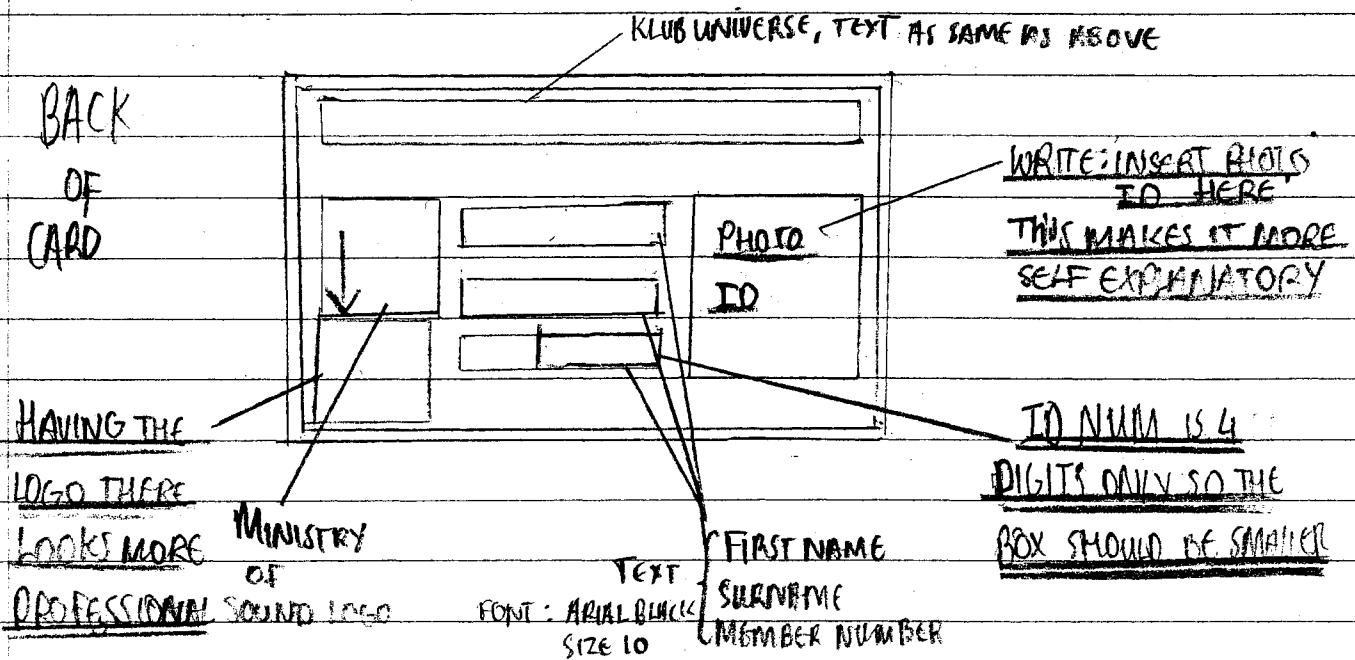 KLUB UNIVERSE, TEXT AS SAME AS ABOVE
BACK
OF
CARD
WRITE: INSERT PHOTO
ID HERE'
THIS MAKES IT MORE
SELF EXPLANATORY
PHOTO
ID
HAVING THE
LOGO THERE
LOOKS MORE
PROFESSIONAL
MINISTRY
OF
SOUND LOGO
TEXT
FONT: ARIAL BLACK
SIZE 10
FIRST NAME
SURNAME
MEMBER NUMBER
ID NUM IS 4
DIGITS ONLY SO THE
BOX SHOULD BE SMALLER